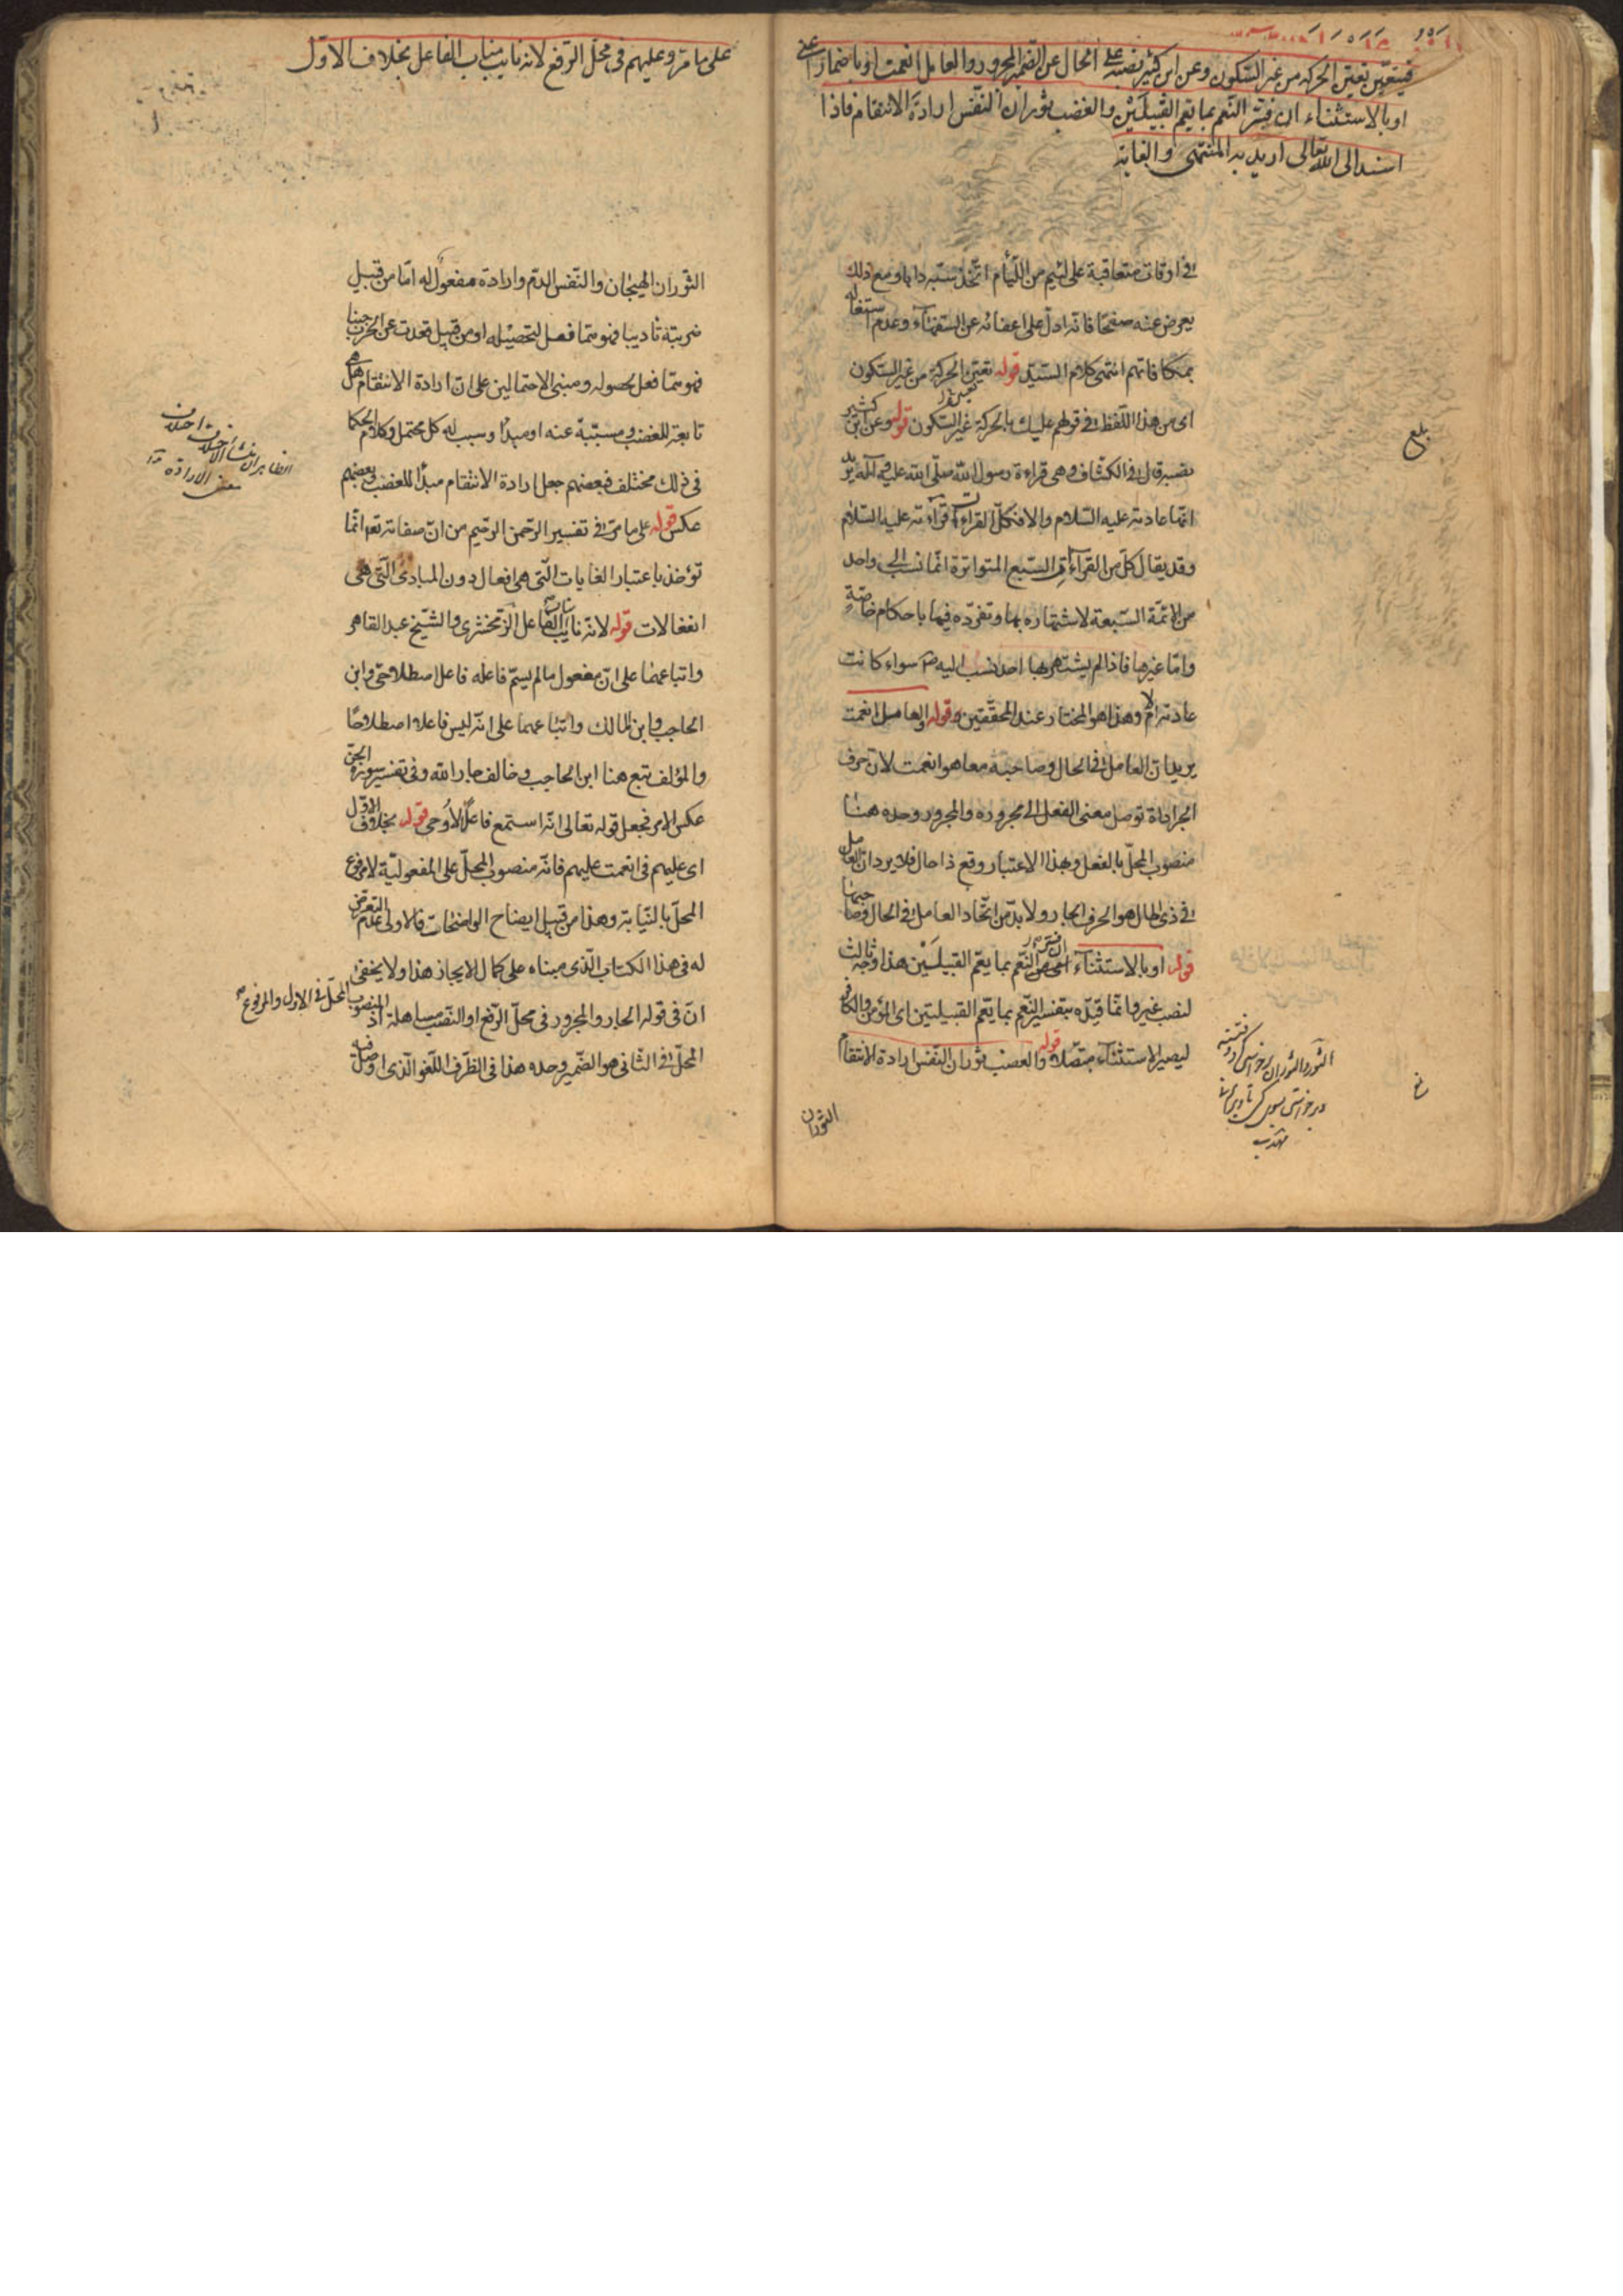 فيتعين تعين الحركة من غير السكون وعن ابن كثير نصبه على الحال عن الضمير المجرور والعامل انعمت او باضمار اعنى
او بالاستثناء ان فسر النعم بما يعم القبيلين والغضب ثوران النفس ارادة الانتقام فاذا
اسند الى الله تعالى اريد به المنتهى والغاية
فى اوقات متعاقبة على لئيم من اللئام اتخذ سبه دابا ومع ذلك
يعرض عنه صفحا فانه ادل على اعضائه عن السفهاء وعدم اشتغاله
بمكافاتهم انتهى كلام السيد قوله تعين الحركة من غير السكون
اى من هذا اللفظ فى قولهم عليك بالحركة غير السكون قوله وعن ابن كثير
نصبه قال فى الكشاف وهى قراءة رسول الله صلى الله عليه وآله يريد
انها عادته عليه السلام والا فكل القراءات قراءته عليه السلام
وقد يقال كل من القراءات السبع المتواترة انما نسب الى واحد
من الائمة السبعة لاشتهاره بها وتفرده فيها باحكام خاصة
واما غيرها فاذا لم يشتهر بها احد نسب اليه ص سواء كانت
عادته ام لا وهذا هو المختار عند المحققين قوله والعامل انعمت
يريد ان العامل فى الحال وصاحبه معا هو انعمت لان حرف
الجر اداة توصل معنى الفعل الى مجروره والمجرور وحده هنا
منصوب المحل بالفعل وبهذا الاعتبار وقع ذا حال فلا يرد ان العامل
فى ذى الحال هو الحرف الجار ولا بد من اتحاد العامل فى الحال وصاحبها
قوله او بالاستثناء ان فسر النعم بما يعم القبيلين هذا وجه ثالث
لنصب غير وانما قيده بتفسير النعم بما يعم القبيلتين اى المؤمن والكافر
ليصير الاستثناء متصلا قوله والغضب ثوران النفس ارادة الانتقام
الثوران
بلغ
على ما مر وعليهم فى محل الرفع لانه نايب مناب الفاعل بخلاف الاول
الثوران الهيجان والنفس الدم وارادة مفعول له اما من قبيل
ضربته تاديبا فهو مما فعل لتحصيله او من قبيل قعدت عن الحرب جبنا
فهو مما فعل لحصوله ومبنى الاحتمالين على ان ارادة الانتقام هل هى
تابعة للغضب ومسببة عنه او مبدأ وسبب له كل محتمل وكلام الحكما
فى ذلك مختلف فبعضهم جعل ارادة الانتقام مبدأ للغضب وبعضهم
عكس قوله على ما مر فى تفسير الرحمن الرحيم من ان صفاته تعم انما
تؤخذ باعتبار الغايات التى هى افعال دون المبادى التى هى
انفعالات قوله لانه نايب مناب الفاعل الزمخشرى والشيخ عبد القاهر
واتباعهما على ان مفعول ما لم يسم فاعله فاعل اصطلاحى وابن
الحاجب وابن المالك واتباعهما على انه ليس فاعلا اصطلاحا
والمؤلف تبع هنا ابن الحاجب وخالف جار الله وفى تفسير سورة الجن
عكس الامر فجعل قوله تعالى انه استمع فاعلا لاوحى قوله بخلاف الاول
اى عليهم فى انعمت عليهم فانه منصوب المحل على المفعولية لا مرفوع
المحل بالنيابة وهذا من قبيل ايضاح الواضحات فالاولى عدم التعرض
له فى هذا الكتاب الذى مبناه على كمال الايجاز هذا ولا يخفى
ان فى قوله الجار والمجرور فى محل الرفع او النصب مساهلة اذ
المنصوب المحل فى الاول والمرفوع
المحل فى الثانى هو الضمير وحده هذا فى الظرف اللغو الذى